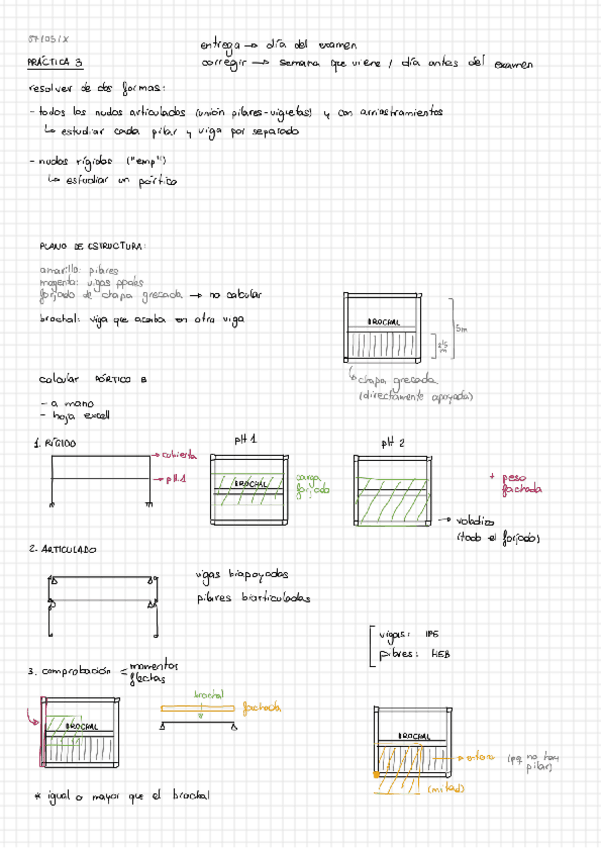 07/05/X
entrega → día del examen
PRÁCTICA 3
corregir → semana que viene / día antes del examen
resolver de dos formas:
- todos los nudos articulados (unión pilares-viguetas) y con arriostramientos
↳ estudiar cada pilar y viga por separado
- nudos rígidos ("emp")
↳ estudiar un pórtico
PLANO DE ESTRUCTURA:
amarillo: pilares
magenta: vigas ppales
forjado de chapa grecada → no calcular
brochal: viga que acaba en otra viga
BROCHAL
5m
chapa grecada
(directamente apoyada)
calcular PÓRTICO B
- a mano
- hoja excell
1. RÍGIDO
pH 1
pH 2
→ cubierta
→ pH.1
BROCHAL
carga
forjado
+ peso
fachada
→ voladizo
(todo el forjado)
2. ARTICULADO
vigas biapoyadas
pilares biarticulados
vigas: IPE
pilares: HEB
3. comprobación
momentos
flechas
BROCHAL
brochal
fachada
BROCHAL
→ entero
(pq no hay
pilar)
(mitad)
* igual o mayor que el brochal